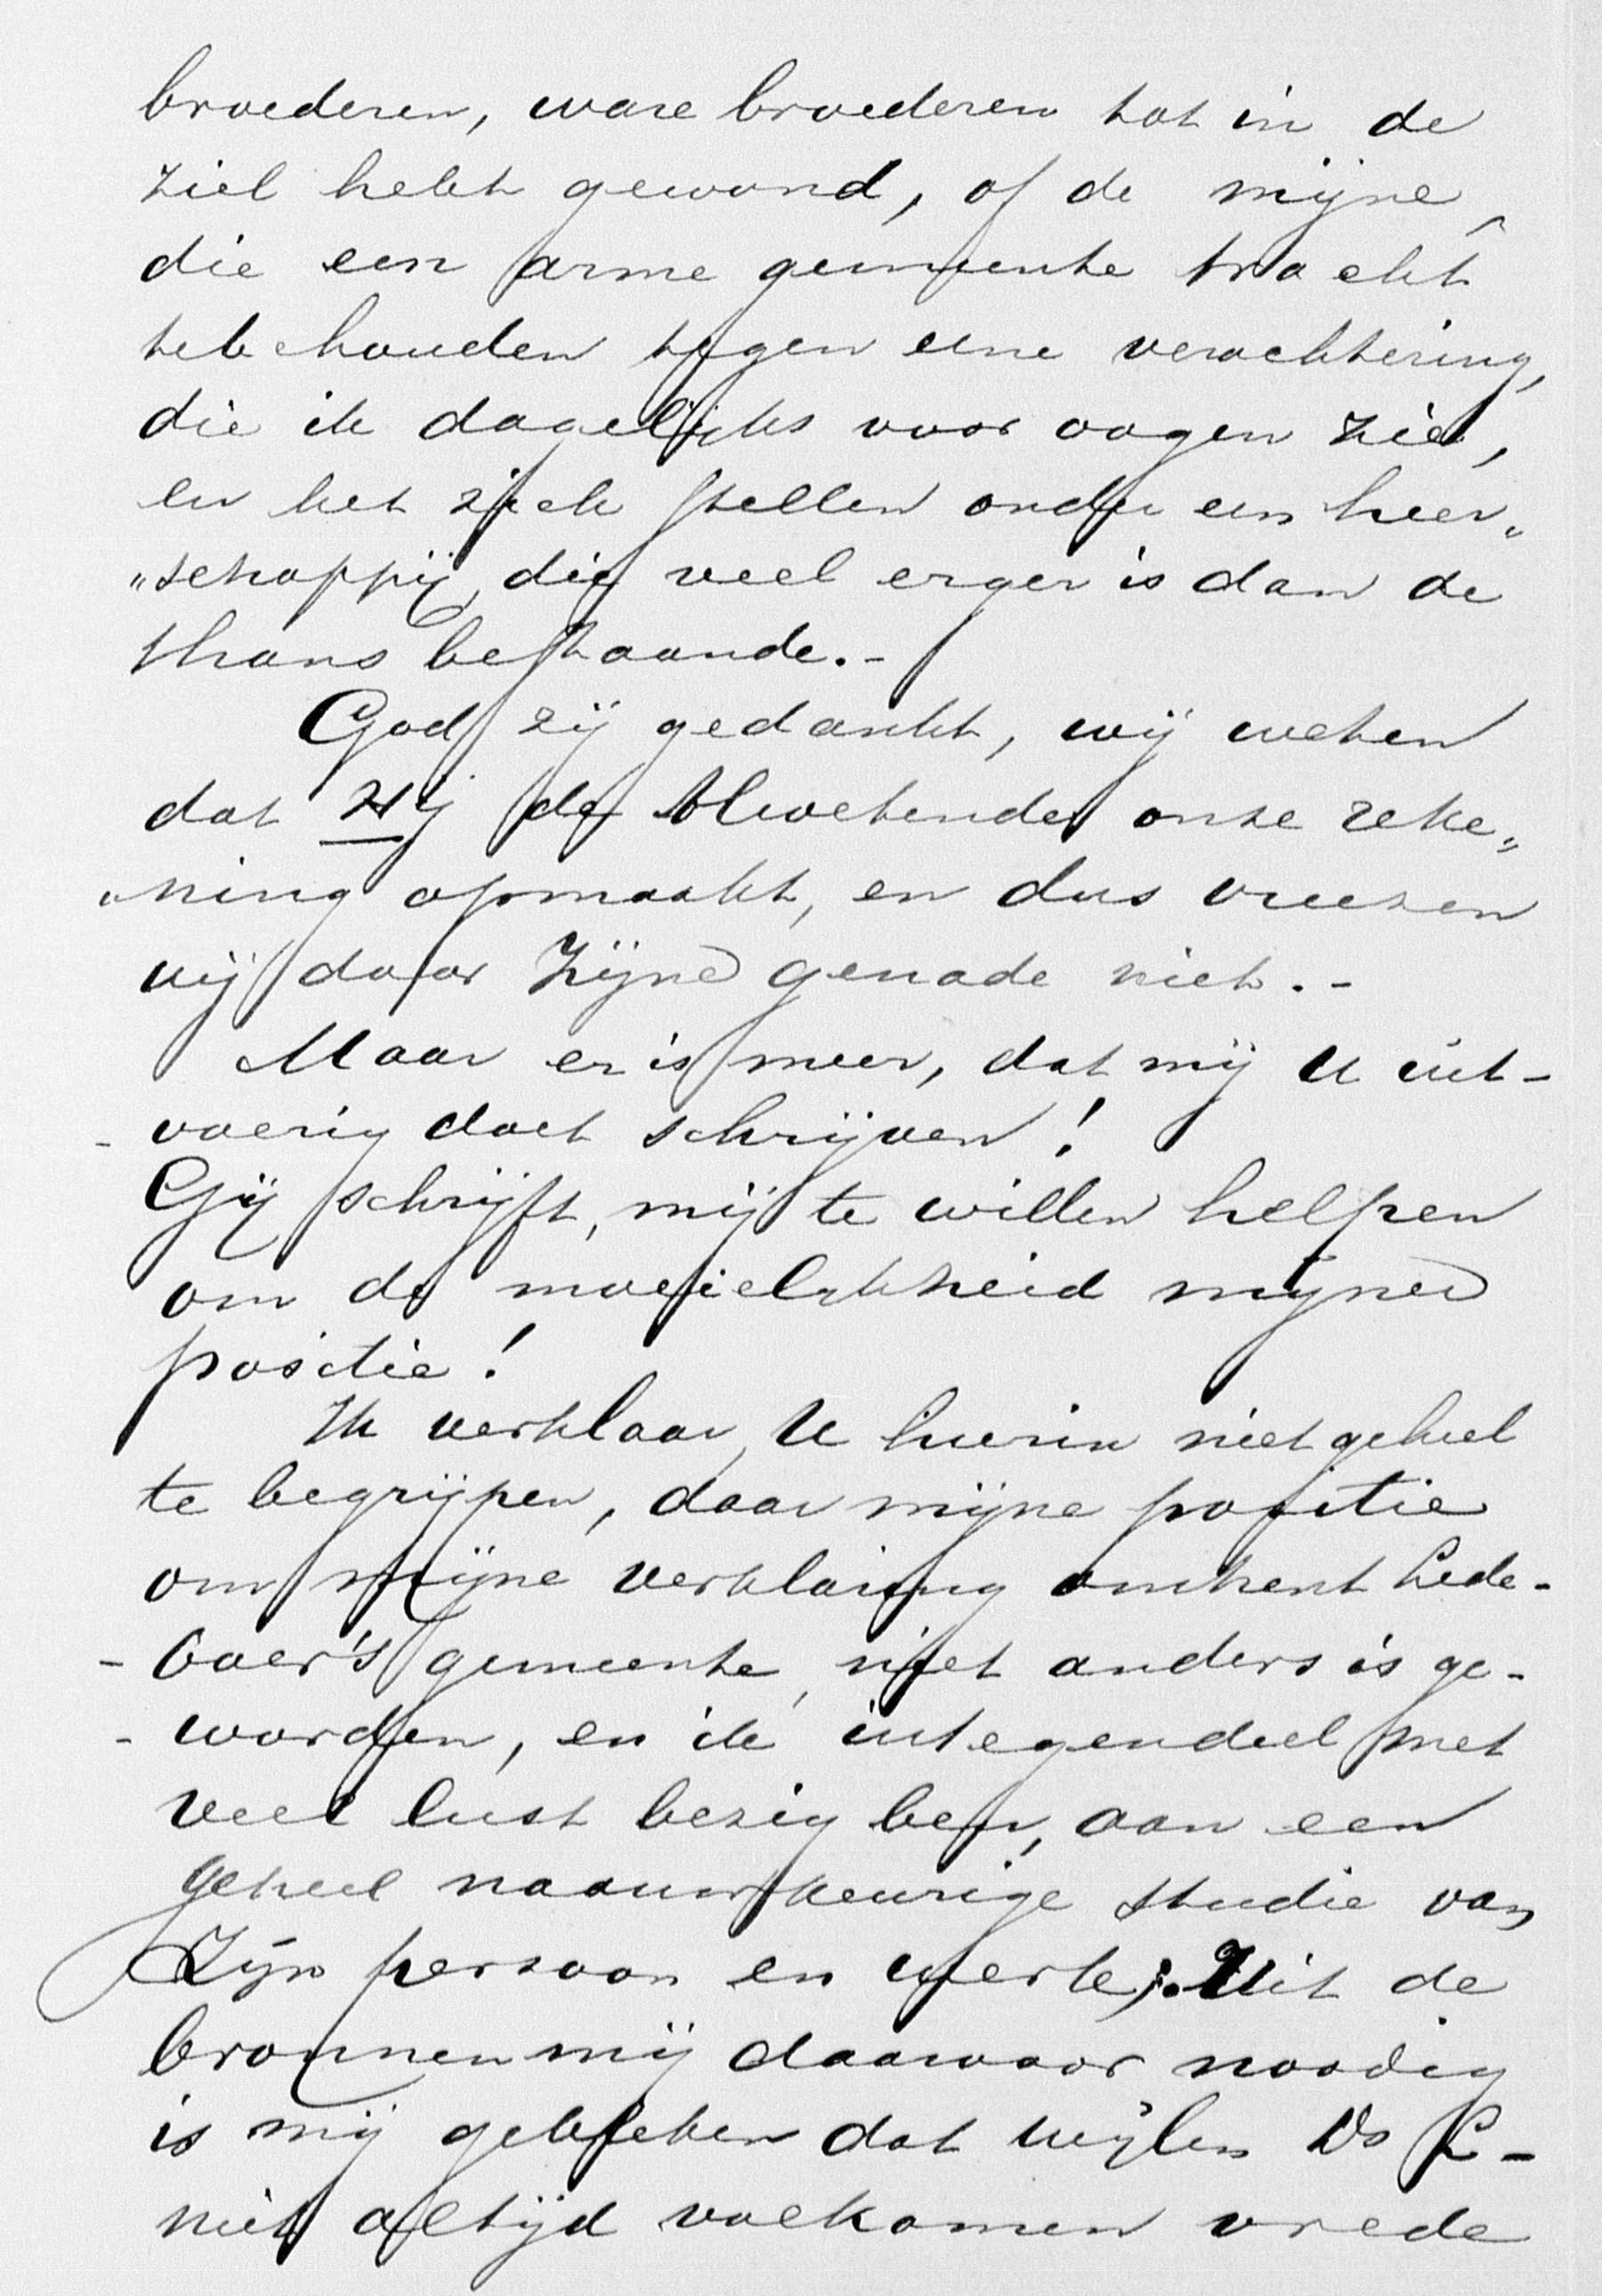 broederen, ware broederen tot in de
ziel hebt gewond, of de mijne,
die een arme gemeente tracht
te behouden tegen eene verachtering,
die ik dagelijks voor oogen zie,
en het zich stellen onder een heer„
„schappij, die veel erger is dan de
thans bestaande.-
God zij gedankt, wij weten
dat Hij de Alwetende onze reke„
„ning opmaakt, en dus vreezen
wij door Zijne genade niet.-
Maar er is meer, dat mij U uit-
- voerig doet schrijven!
Gij schrijft, mij te willen helpen
om de moeielijkheid mijner
positie!
Ik verklaar, U hierin niet geheel
te begrijpen, daar mijne positie
om mijne verklaring omtrent Lede-
- boer's gemeente, niet anders is ge-
- worden, en ik integendeel met
veel lust bezig ben, aan een
geheel naauwkeurige studie van
Zijn persoon en werk; Uit de
bronnen mij daarvoor noodig
is mij gebleken dat wijlen Ds L-
niet altijd volkomen vrede